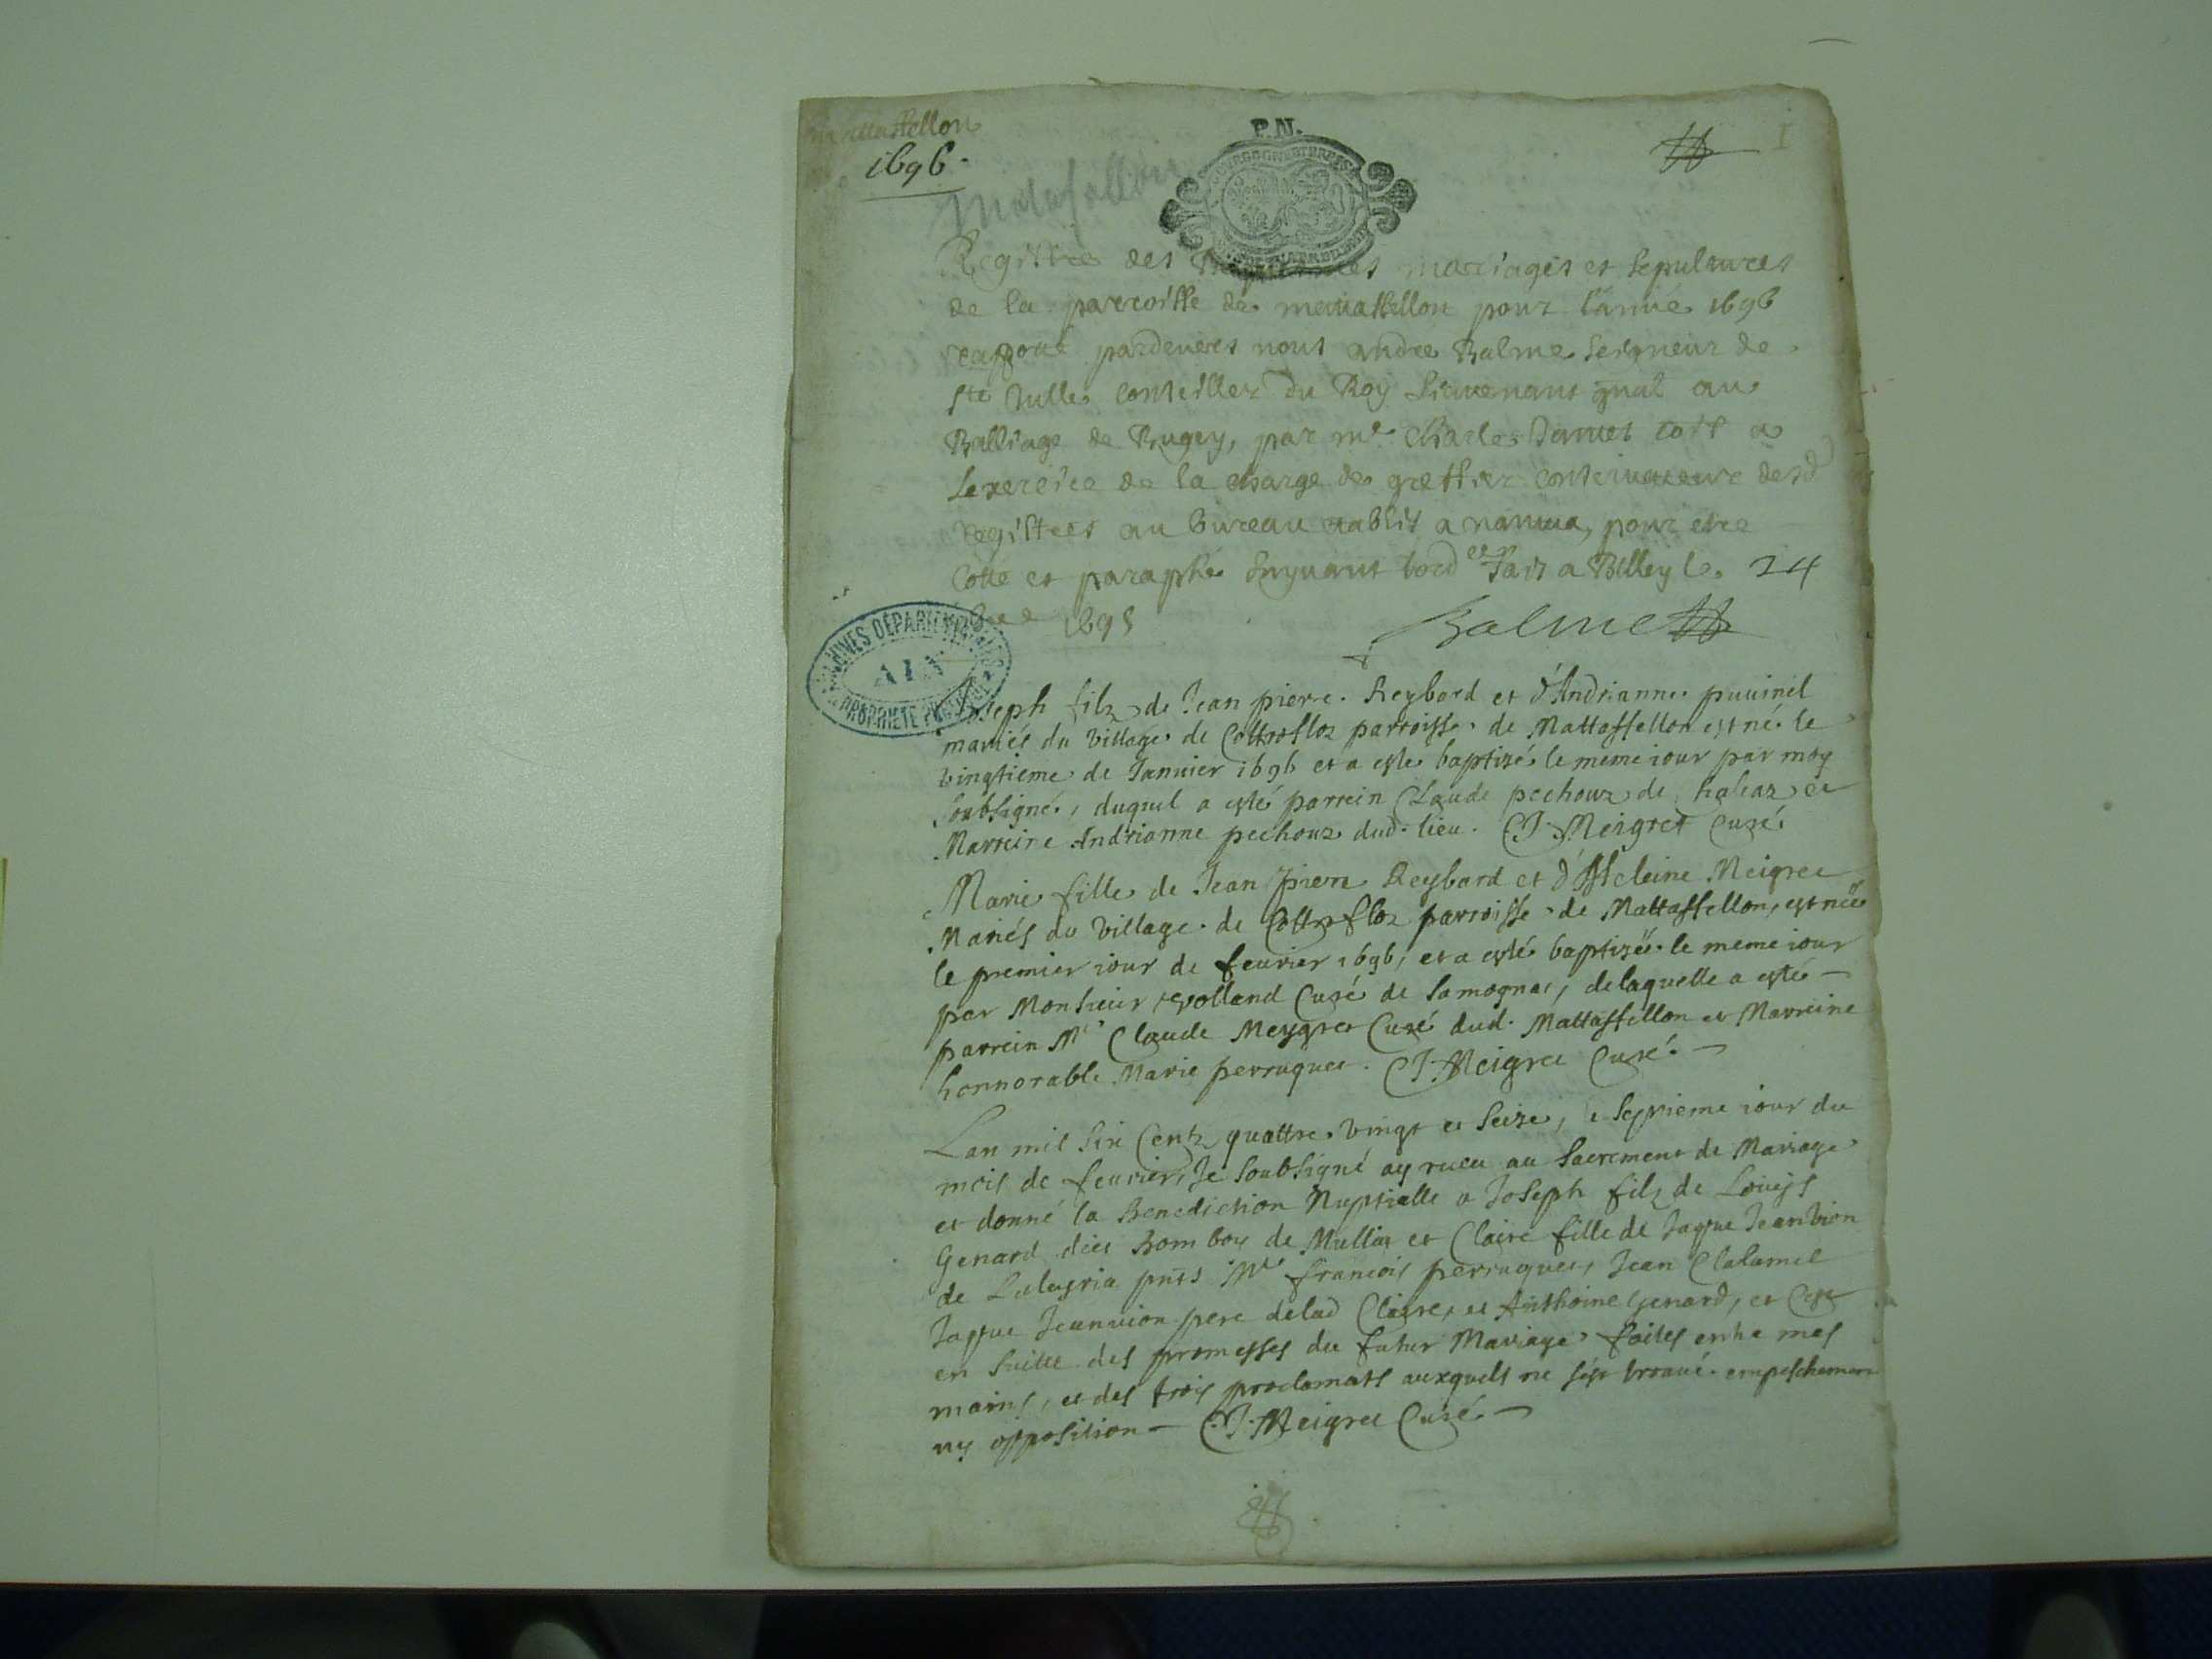 mattafellon
1696.
Matafellon
P.N.
I
Registre des Baptesmes mariages et sepultures
de la parroisse de mattaffellon pour l'année 1696
raporté pardevers nous andre Balme seigneur de
Ste Julle conseiller du Roy lieutenant gnal au
Balliage de Bugey, par me. Charles
Lexercice de la charge de greffier conservateur desd
registres au bureau etably a nantua, pour estre
Cotté et paraphé suyvant Fait a Belley le 24
1695
Balme
ARCHIVES DÉPARTEMENTALES
AIN
PROPRIÉTÉ PUBLIQUE
Joseph filz de Jean pierre Reybard et d'Andrianne puvinel
mariés du village de Cottrofloz parroisse de Mattaffellon est né le
vingtieme de Janvier 1696 et a esté baptizé le meme iour par moy
soubsigné, duquel a esté parrein Claude pechoux de et
Marreine Andrianne pechoux dud. lieu. C J. Meigret Curé
Marie fille de Jean pierre Reybard et Meigret
Mariés du village de Cottrofloz parroisse de Mattaffellon, est néë
le premier iour de fevrier 1696, et a esté baptizéë le meme iour
par Monsieur Curé de Samognat, delaquelle a esté
parrein Mre Claude Meygret Curé dud. Mattaffellon et Marreine
honnorable Marie perruquet. C J. Meigret Curé
Lan mil six Centz quattre vingt et seize, le septieme iour du
mois de fevrier, Je soubsigné ay receu au Sacrement de Mariage
et donné la Benediction Nuptialle a Joseph filz de Loüys
Genard dict Bomboy de Mulliat et Claire fille de Jaque Jeanvion
de Luleyria pnts Me francois perruquet, Jean Clalamel
Jaque Jeanvion pere delad Claire, et Anthoine Genard, et Cest
en suitte des promesses du futur Mariage faites entre mes
mains, et des trois proclamats auxquels ne sest trouvé empeschement
ny opposition — C. J. Meigret Curé —